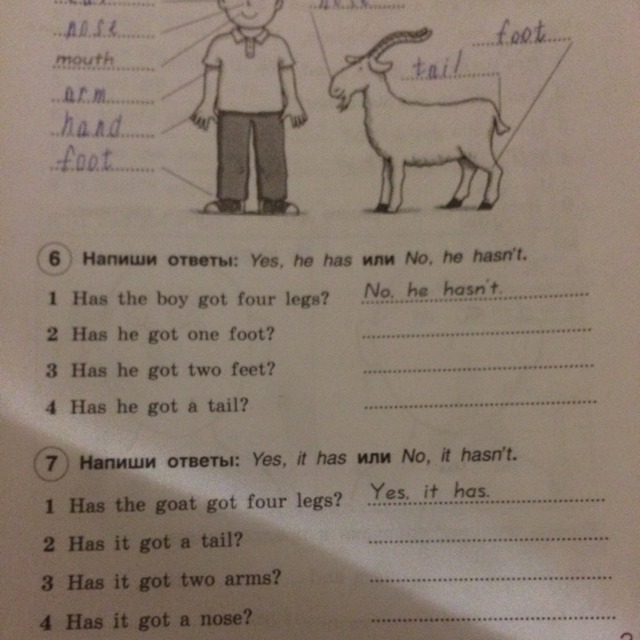 nose
mouth
arm
hand
foot
foot
tail
6 Напиши ответы: Yes, he has или No, he hasn't.
1 Has the boy got four legs? No, he hasn't.
2 Has he got one foot?
3 Has he got two feet?
4 Has he got a tail?
7 Напиши ответы: Yes, it has или No, it hasn't.
1 Has the goat got four legs? Yes, it has.
2 Has it got a tail?
3 Has it got two arms?
4 Has it got a nose?